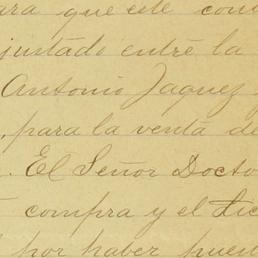 ara que este con
justado entre la
Antonio Jaquez
, para la venta de
. El Señor Docto
compra y el dic
por haber puen